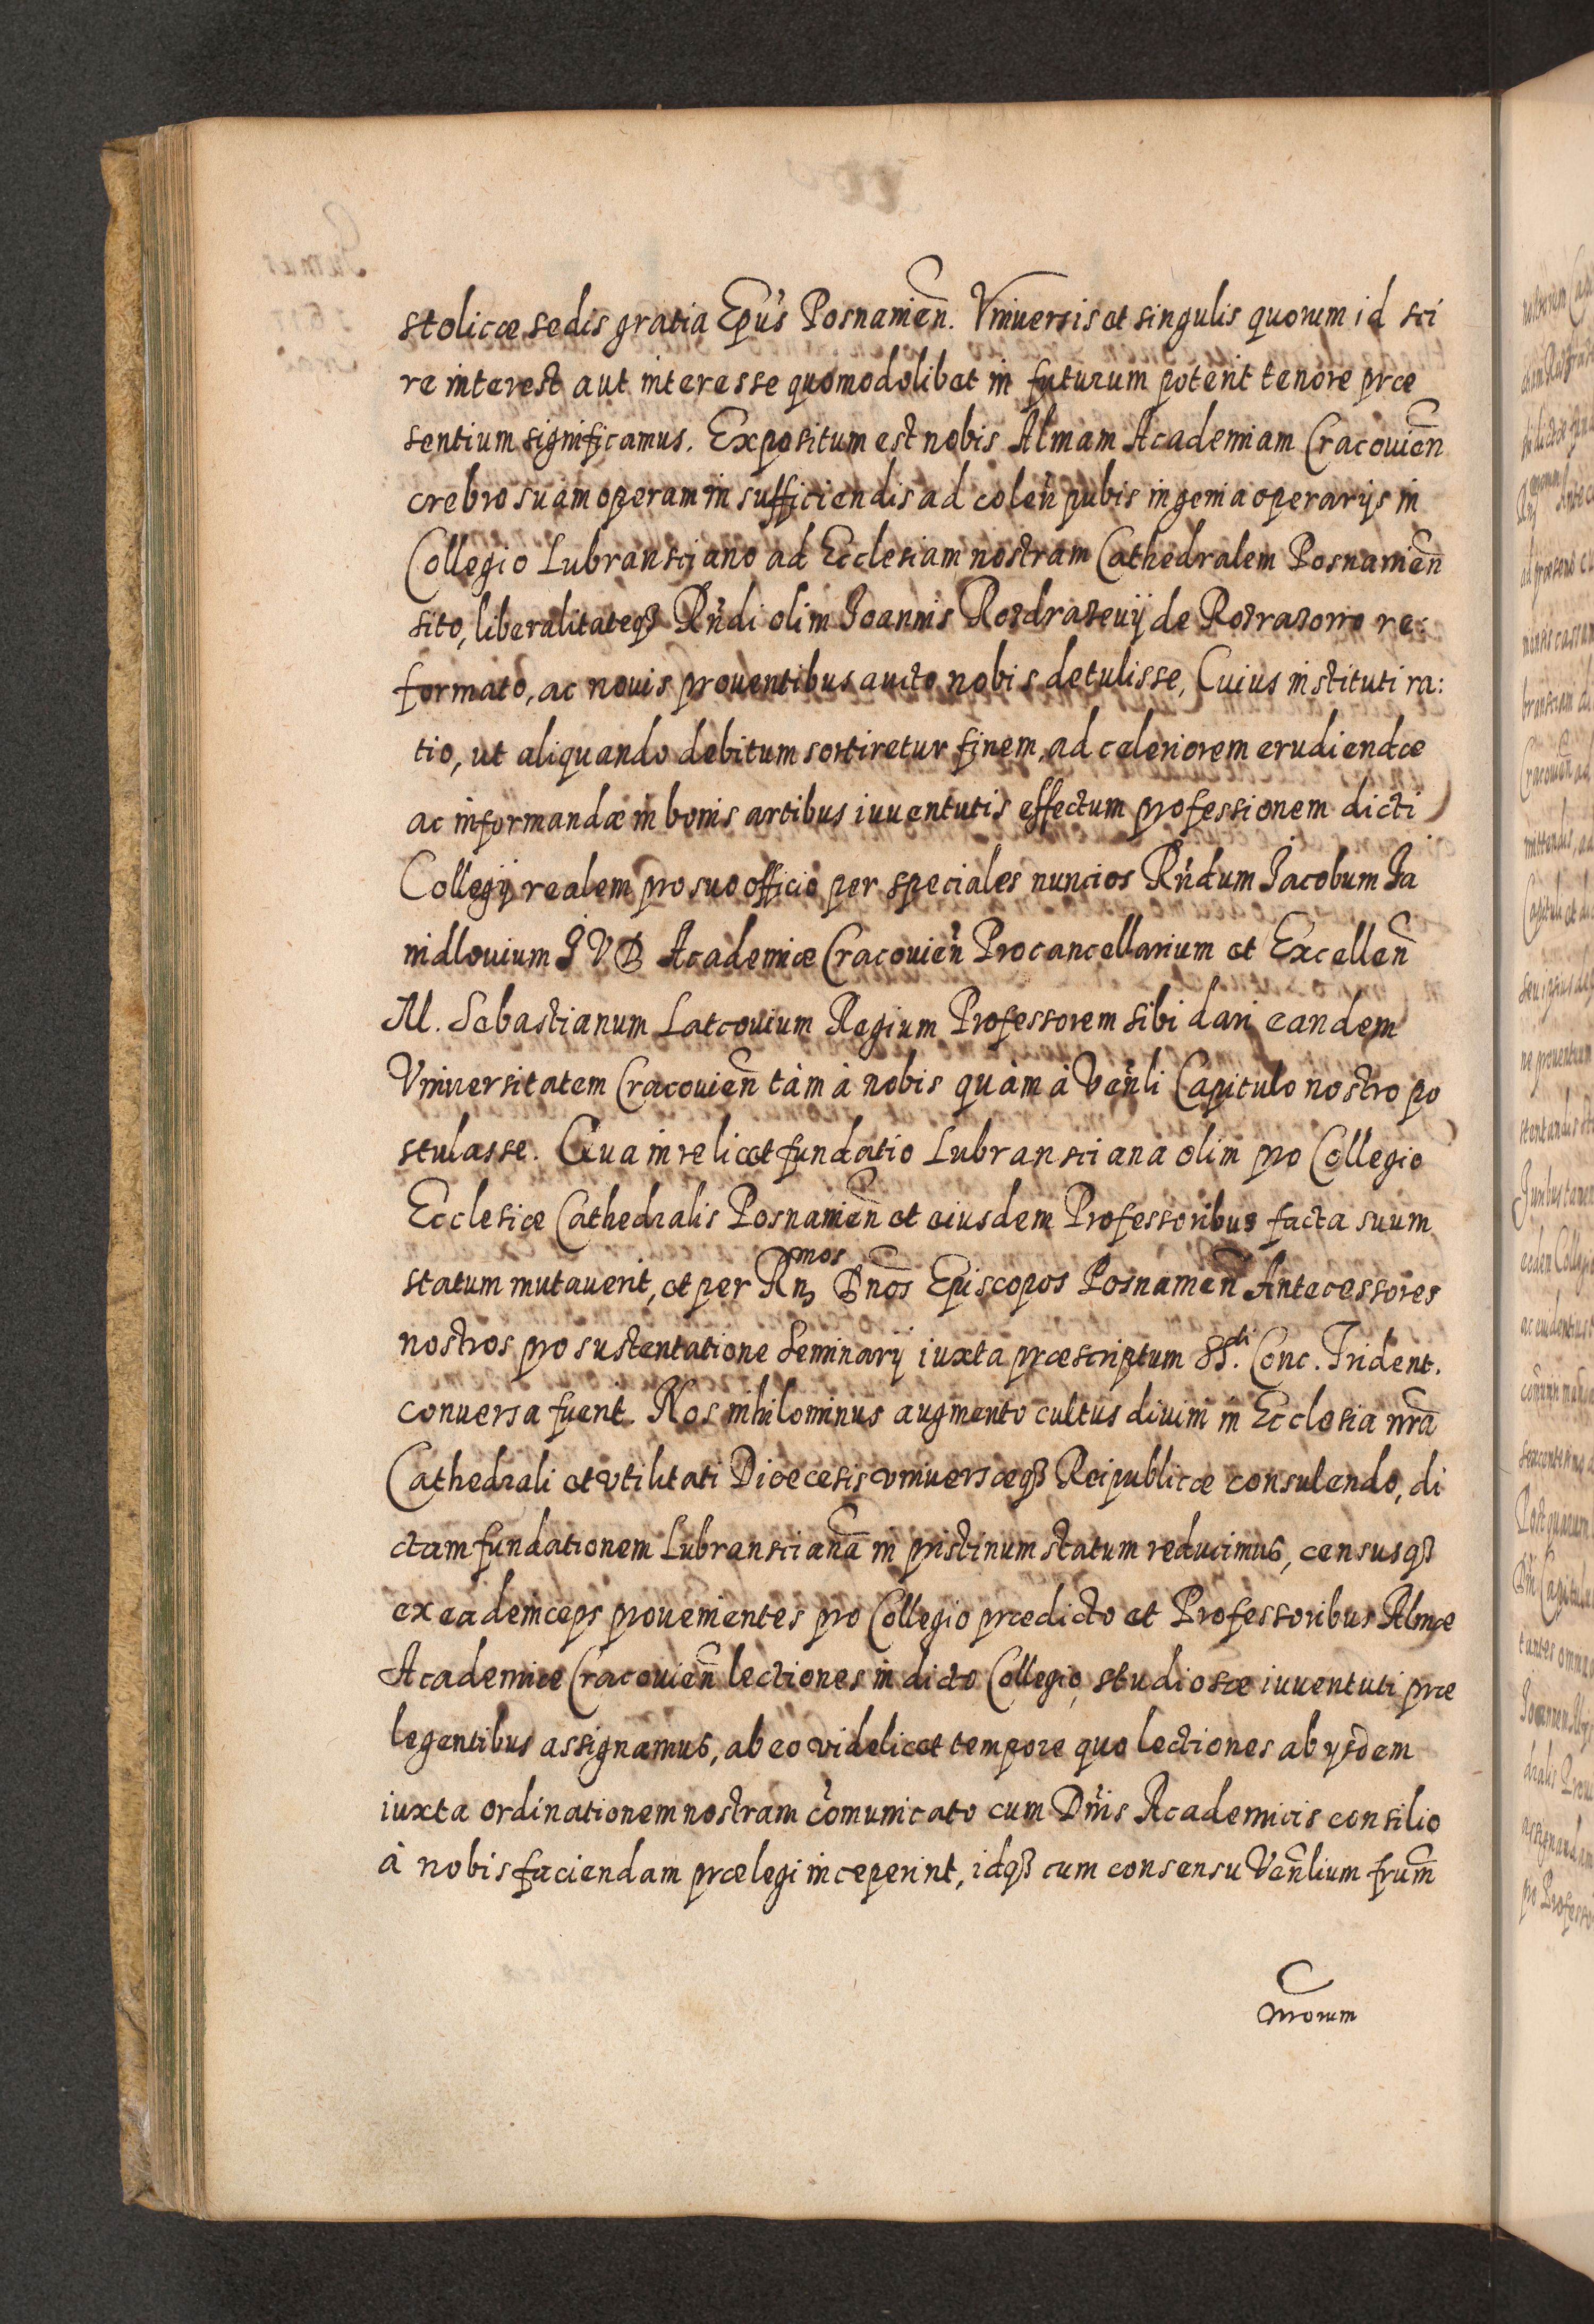 stolicæ sedis gratia Epùs Posnanien̄. Vniuersis et singulis quorum id sci
re interest aut interesse quomodolibet in futurum poterit tenore præ
sentium significamus. Expositum est nobis Almam Academiam Cracouien̄
crebro suam operam in sufficiendis ad colen̄ pubis ingenia operarijs in
Collegio Lubransciano ad Ecclesiam nostram Cathedralem Posnanien̄
sito, liberalitateq₃ Rn̄di olim Joannis Rozdrazeuij de Rozrazorro re:
formato, ac nouis prouentibus aucto nobis detulisse, Cuius instituti ra:
tio, ut aliquando debitum sortiretur finem, ad celeriorem erudiendæ
ac informandæ in bonis artibus iuuentutis effectum professionem dicti
Collegij realem pro suo officio per speciales nuncios Rn̄dum Jacobum Ja
nidlouium J V D Academiæ Cracouien̄ Procancellarium et Excellen̄
M. Sebastianum Latcouium Regium Professorem sibi dari eandem
Vniuersitatem Cracouien̄ tàm à nobis quàm à Ven̄li Capitulo nostro po
stulasse. Qua in re licet fundatio Lubransciana olim pro Collegio
Ecclesiæ Cathedralis Posnanien̄ et eiusdem Professoribus facta suum
statum mutauerit, et per Rn₃mos Dn̄os Episcopos Posnanien̄ Antecessores
nostros pro sustentatione Seminarij iuxta præscriptum SS.ti Conc. Trident.
conuersa fuerit. Nos nihilominus augmento cultus diuini in Ecclesia nr̄a
Cathedrali et vtilitati Diœcesis vniuersæq₃ Reipublicæ consulendo, di
ctam fundationem Lubranscianā in pristinum statum reducimus, censusq₃
ex ea demceps prouenientes pro Collegio prædicto et Professoribus Almæ
Academiæ Cracouien̄ lectiones in dicto Collegio, studiosæ iuuentuti præ
legentibus assignamus, ab eo videlicet tempore quo lectiones ab ysdem
iuxta ordinationem nostram com̄unicato cum Dn̄is Academicis consilio
à nobis faciendam prælegi inceperint, idq₃ cum consensu Ven̄lium frum̄
nrorum